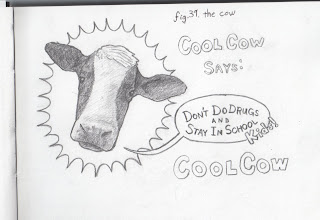 fig. 39. the cow
COOL COW
SAYS:
DON'T DO DRUGS
AND
STAY IN SCHOOL
Kids!
COOL COW